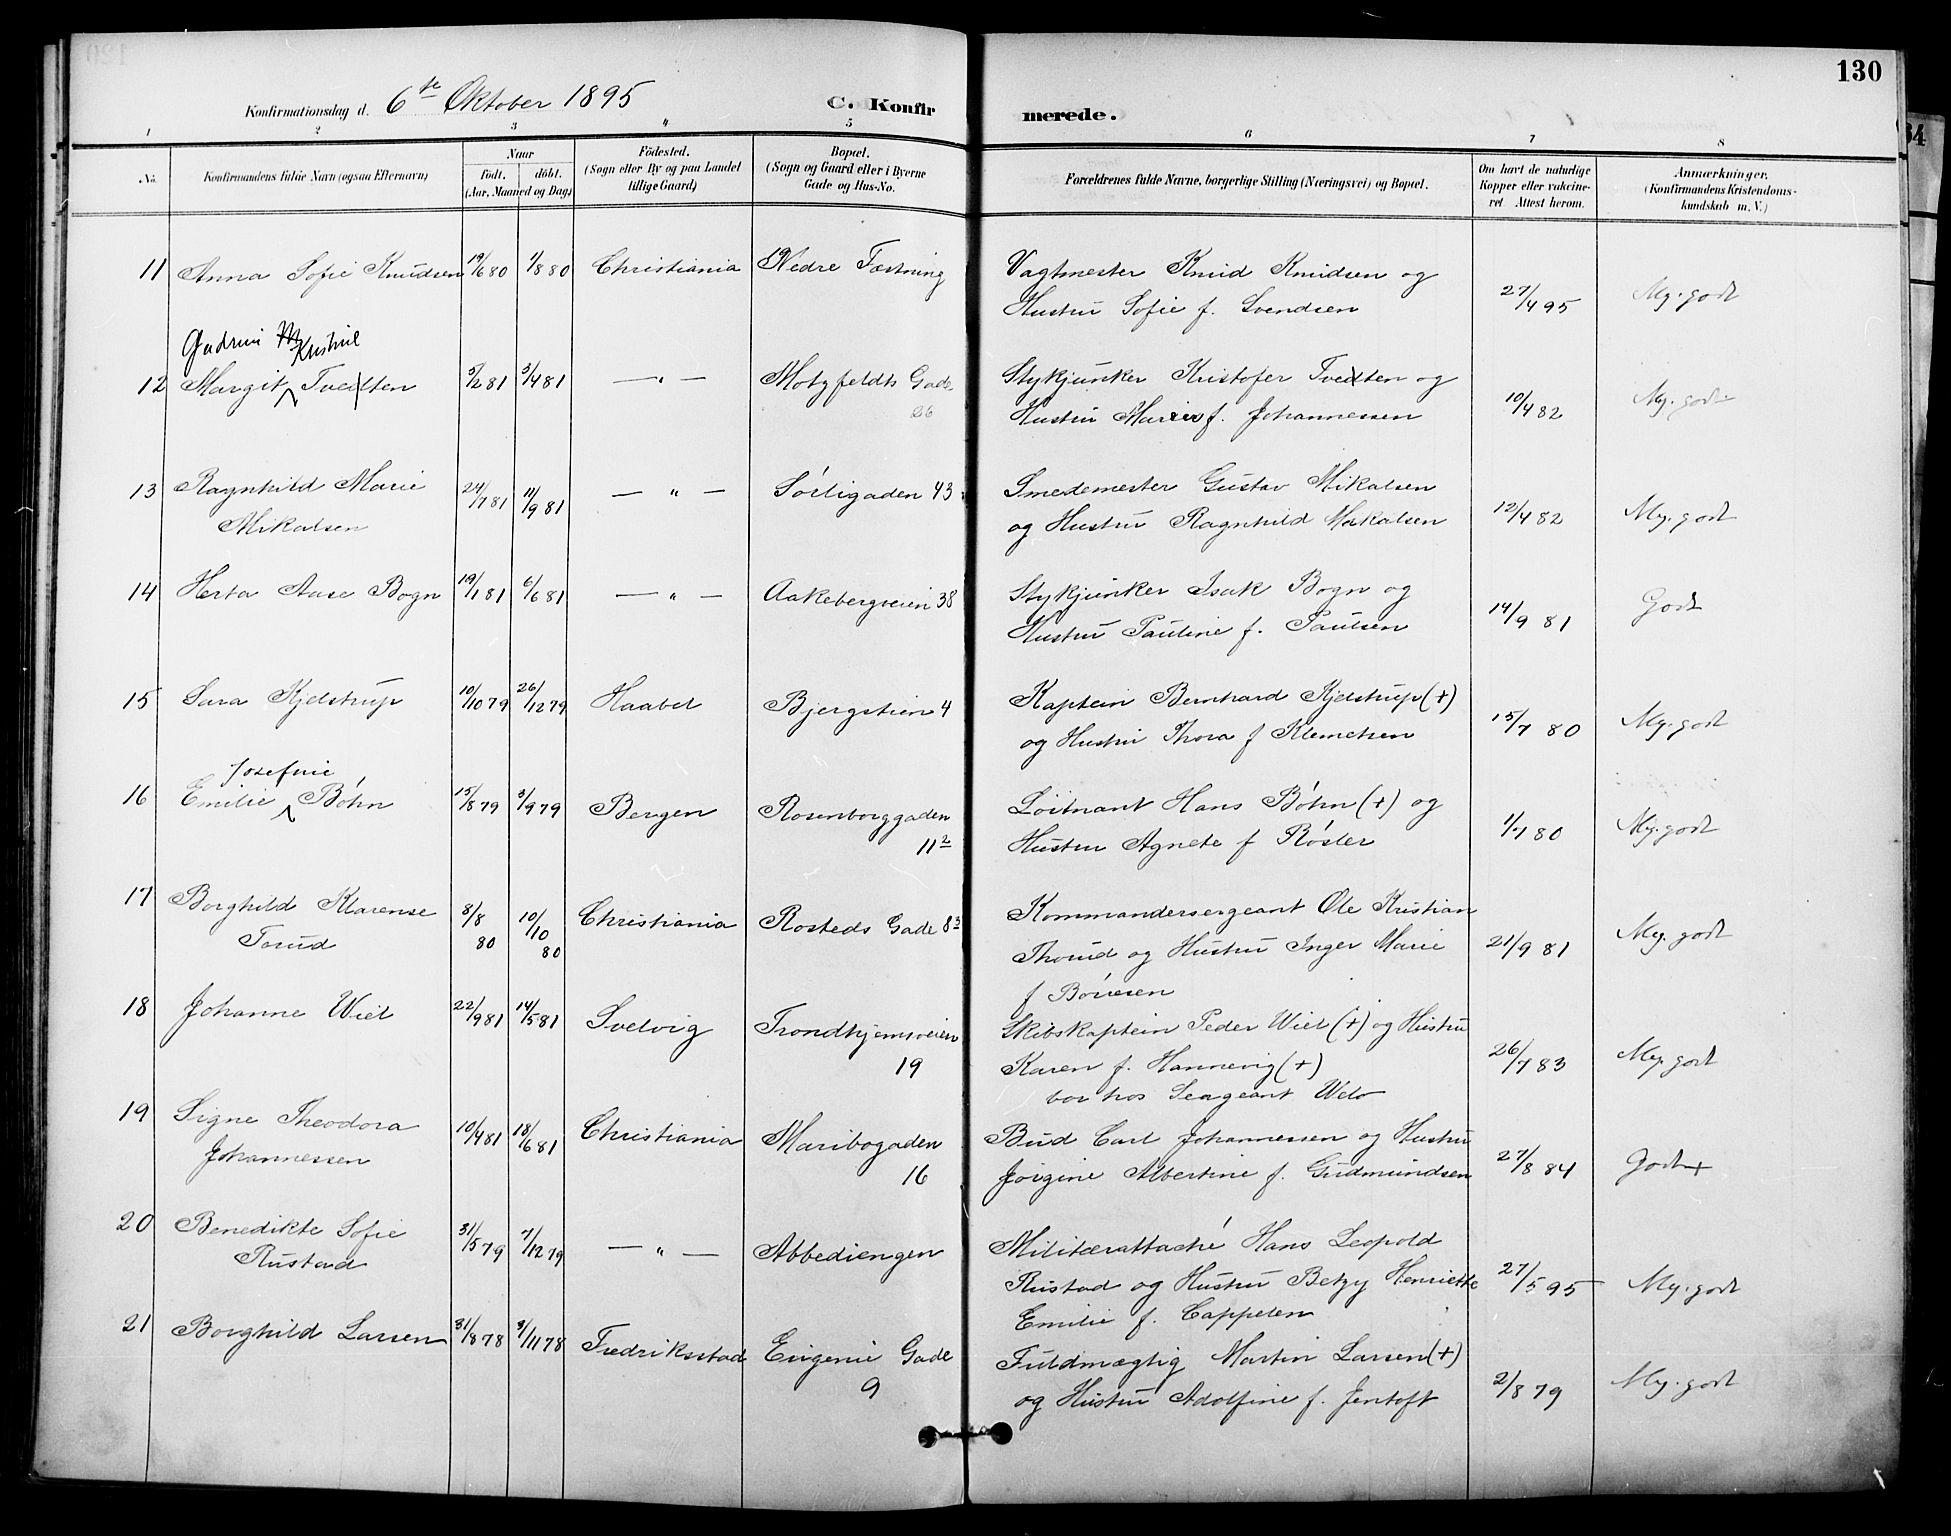 130
Konfirmationsdag d. 6te Oktober 1895 C. Konfirmerede.
1 2 3 4 5 6 7 8
No. Konfirmandens fulde Navn (ogsaa Efternavn) Naar Födt. döbt. (Aar, Maaned og Dag) Födested. (Sogn eller By og paa Landet tillige Gaard) Bopæl. (Sogn og Gaard eller i Byerne Gade og Hus-No. Forældrenes fulde Navne, borgerlige Stilling (Næringsvei) og Bopæl. Om havt de naturlige Kopper eller vaccineret Attest herom. Anmærkninger. (Konfirmandens Kristendomskundskab m. V.)
11 Anna Sofie Knudsen 19/6 80 1/8 80 Christiania Nedre Fæstning Vagtmester Knud Knudsen og
Hustru Sofie f. Svendsen 27/4 95 Mg. godt
Gudrun Kristine
12 Margit Tvedten 5/2 81 3/4 81 — „ — Motzfeldts Gade 26 Stykjunker Kristofer Tvedten og
Hustru Marie f. Johannessen 10/4 82 Mg. godt
13 Ragnhild Marie
Mikalsen 24/7 81 11/9 81 — „ — Sörligaden 43 Smedemester Gustav Mikalsen
og Hustru Ragnhild Mikalsen 12/4 82 Mg. godt
14 Herta Aase Bogn 19/1 81 6/6 81 — „ — Aakebergveien 38 Stykjunker Isak Bogn og
Hustru Pauline f. Paulsen 14/9 81 Godt
15 Sara Kjelstrup 10/10 79 26/12 79 Haabet Bjergstien 4 Kaptein Bernhard Kjelstrup (+)
og Hustru Thora f Klemetsen 15/7 80 Mg. godt
Josefine
16 Emilie Böhn 15/8 79 3/9 79 Bergen Rosenborggaden
11 2 Löitnant Hans Böhn (+) og
Hustru Agnete f Rösler 1/7 80 Mg. godt
17 Borghild Klarense
Torud 8/8 80 10/10 80 Christiania Rosteds Gade 8 3 Kommandersergeant Ole Kristian
Thorud og Hustru Inger Marie
f Börresen 21/9 81 Mg. godt
18 Johanne Wiel 22/9 81 14/5 81 Svelvig Trondhjemsveien
19 Skibskaptein Peder Wiel (+) og Hustru
Karen f. Hannevig (+)
bor hos Sergeant Welo 26/7 83 Mg. godt
19 Signe Theodora
Johannessen 10/4 81 18/6 81 Christiania Maribogaden
16 Bud Carl Johannessen og Hustru
Jörgine Albertine f. Gudmundsen 27/8 84 Godt+
20 Benedikte Sofie
Rustad 31/5 79 7/12 79 — „ — Abbediengen Militærattaché Hans Leopold
Rustad og Hustru Betzy Henriette
Emilie f. Cappelen 27/5 95 Mg. godt
21 Borghild Larsen 31/8 78 3/11 78 Fredriksstad Eugenie Gade
9 Fuldmægtig Martin Larsen (+)
og Hustru Adolfine f. Jentoft 2/8 79 Mg. godt